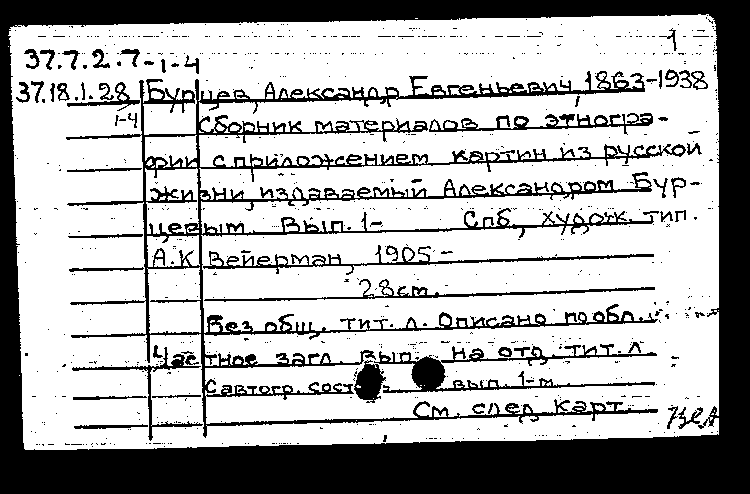 1
37.7.2.7-1-4
37.18.1.28 Бурцев, Александр Евгеньевич, 1863-1938
1-4 Сборник материалов по этногра-
фии с приложением картин из русской
жизни, издаваемый Александром Бур-
цевым. Вып. 1- Спб., худож. тип.
А.К Вейерман, 1905-
28см.
Без общ. тит. л. Описано по обл.
Частное загл. вып. на отд. тит. л.
С автогр. сост. вып. 1-м
См. след. карт.